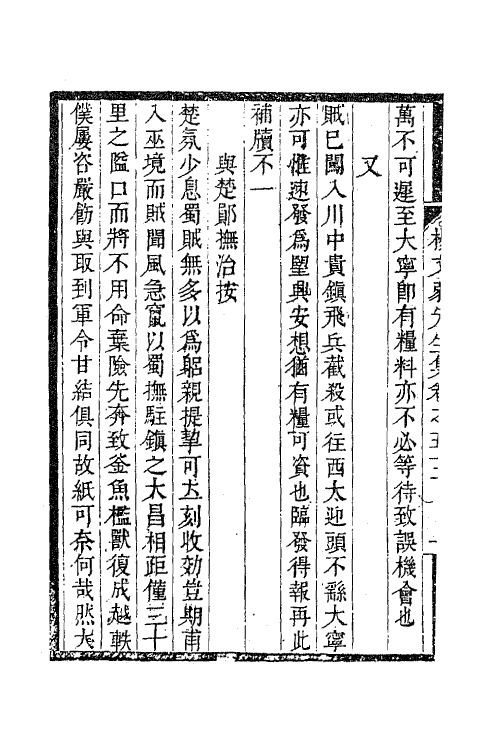 萬不可遲至大寧卽有糧料亦不必等待致誤機會也
又
賊已闖入川中貴鎮飛兵截殺或往西太迎頭不繇大寧
亦可惟速發爲望興安想猶有糧可資也臨發得報再此
補牘不一
與楚鄖撫治按
楚氛少息蜀賊無多以爲躬親提挈可立刻收効豈期甫
入巫境而賊聞風急竄以蜀撫駐鎮之大昌相距僅三十
里之隘口而將不用命棄險先奔致釜魚檻獸復成越軼
僕屢咨嚴飭與取到軍令甘結俱同故紙可奈何哉然大